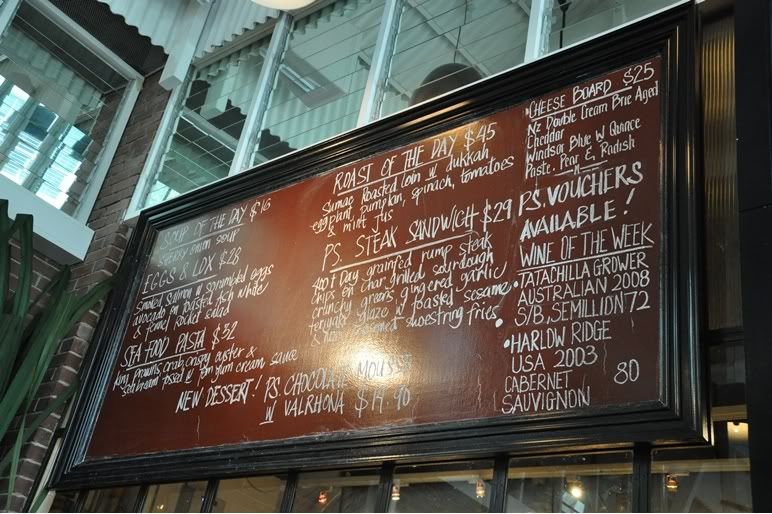 SOUP OF THE DAY $16
Sherry onion soup
EGGS & LOX $28
Smoked Salmon w scrambled eggs
avocado on roasted fish white
& fennel rocket salad
SEA FOOD PASTA $32
King prawns, crab, crispy oyster &
Seabream tossed w Tom yum cream sauce
NEW DESSERT! P.S. CHOCOLATE MOUSSE
W VALRHONA $14.90
ROAST OF THE DAY $45
Sumac Roasted loin w dukkah
eggplant, pumpkin, spinach, tomatoes
& mint jus
P.S. STEAK SANDWICH $29
400+ Day grainfed rump steak
chips on char grilled sourdough
crunchy greens, gingered garlic
teriyaki glaze w toasted sesame
& shoestring fries
CHEESE BOARD $25
NZ Double Cream Brie Aged
Cheddar
Windsor Blue W Quince
Paste. Pear & Radish
P.S. VOUCHERS
AVAILABLE!
WINE OF THE WEEK
• TATACHILLA GROWER
AUSTRALIAN 2008
S/B, SEMILLION 72
• HARLOW RIDGE
USA 2003
CABERNET 80
SAUVIGNON